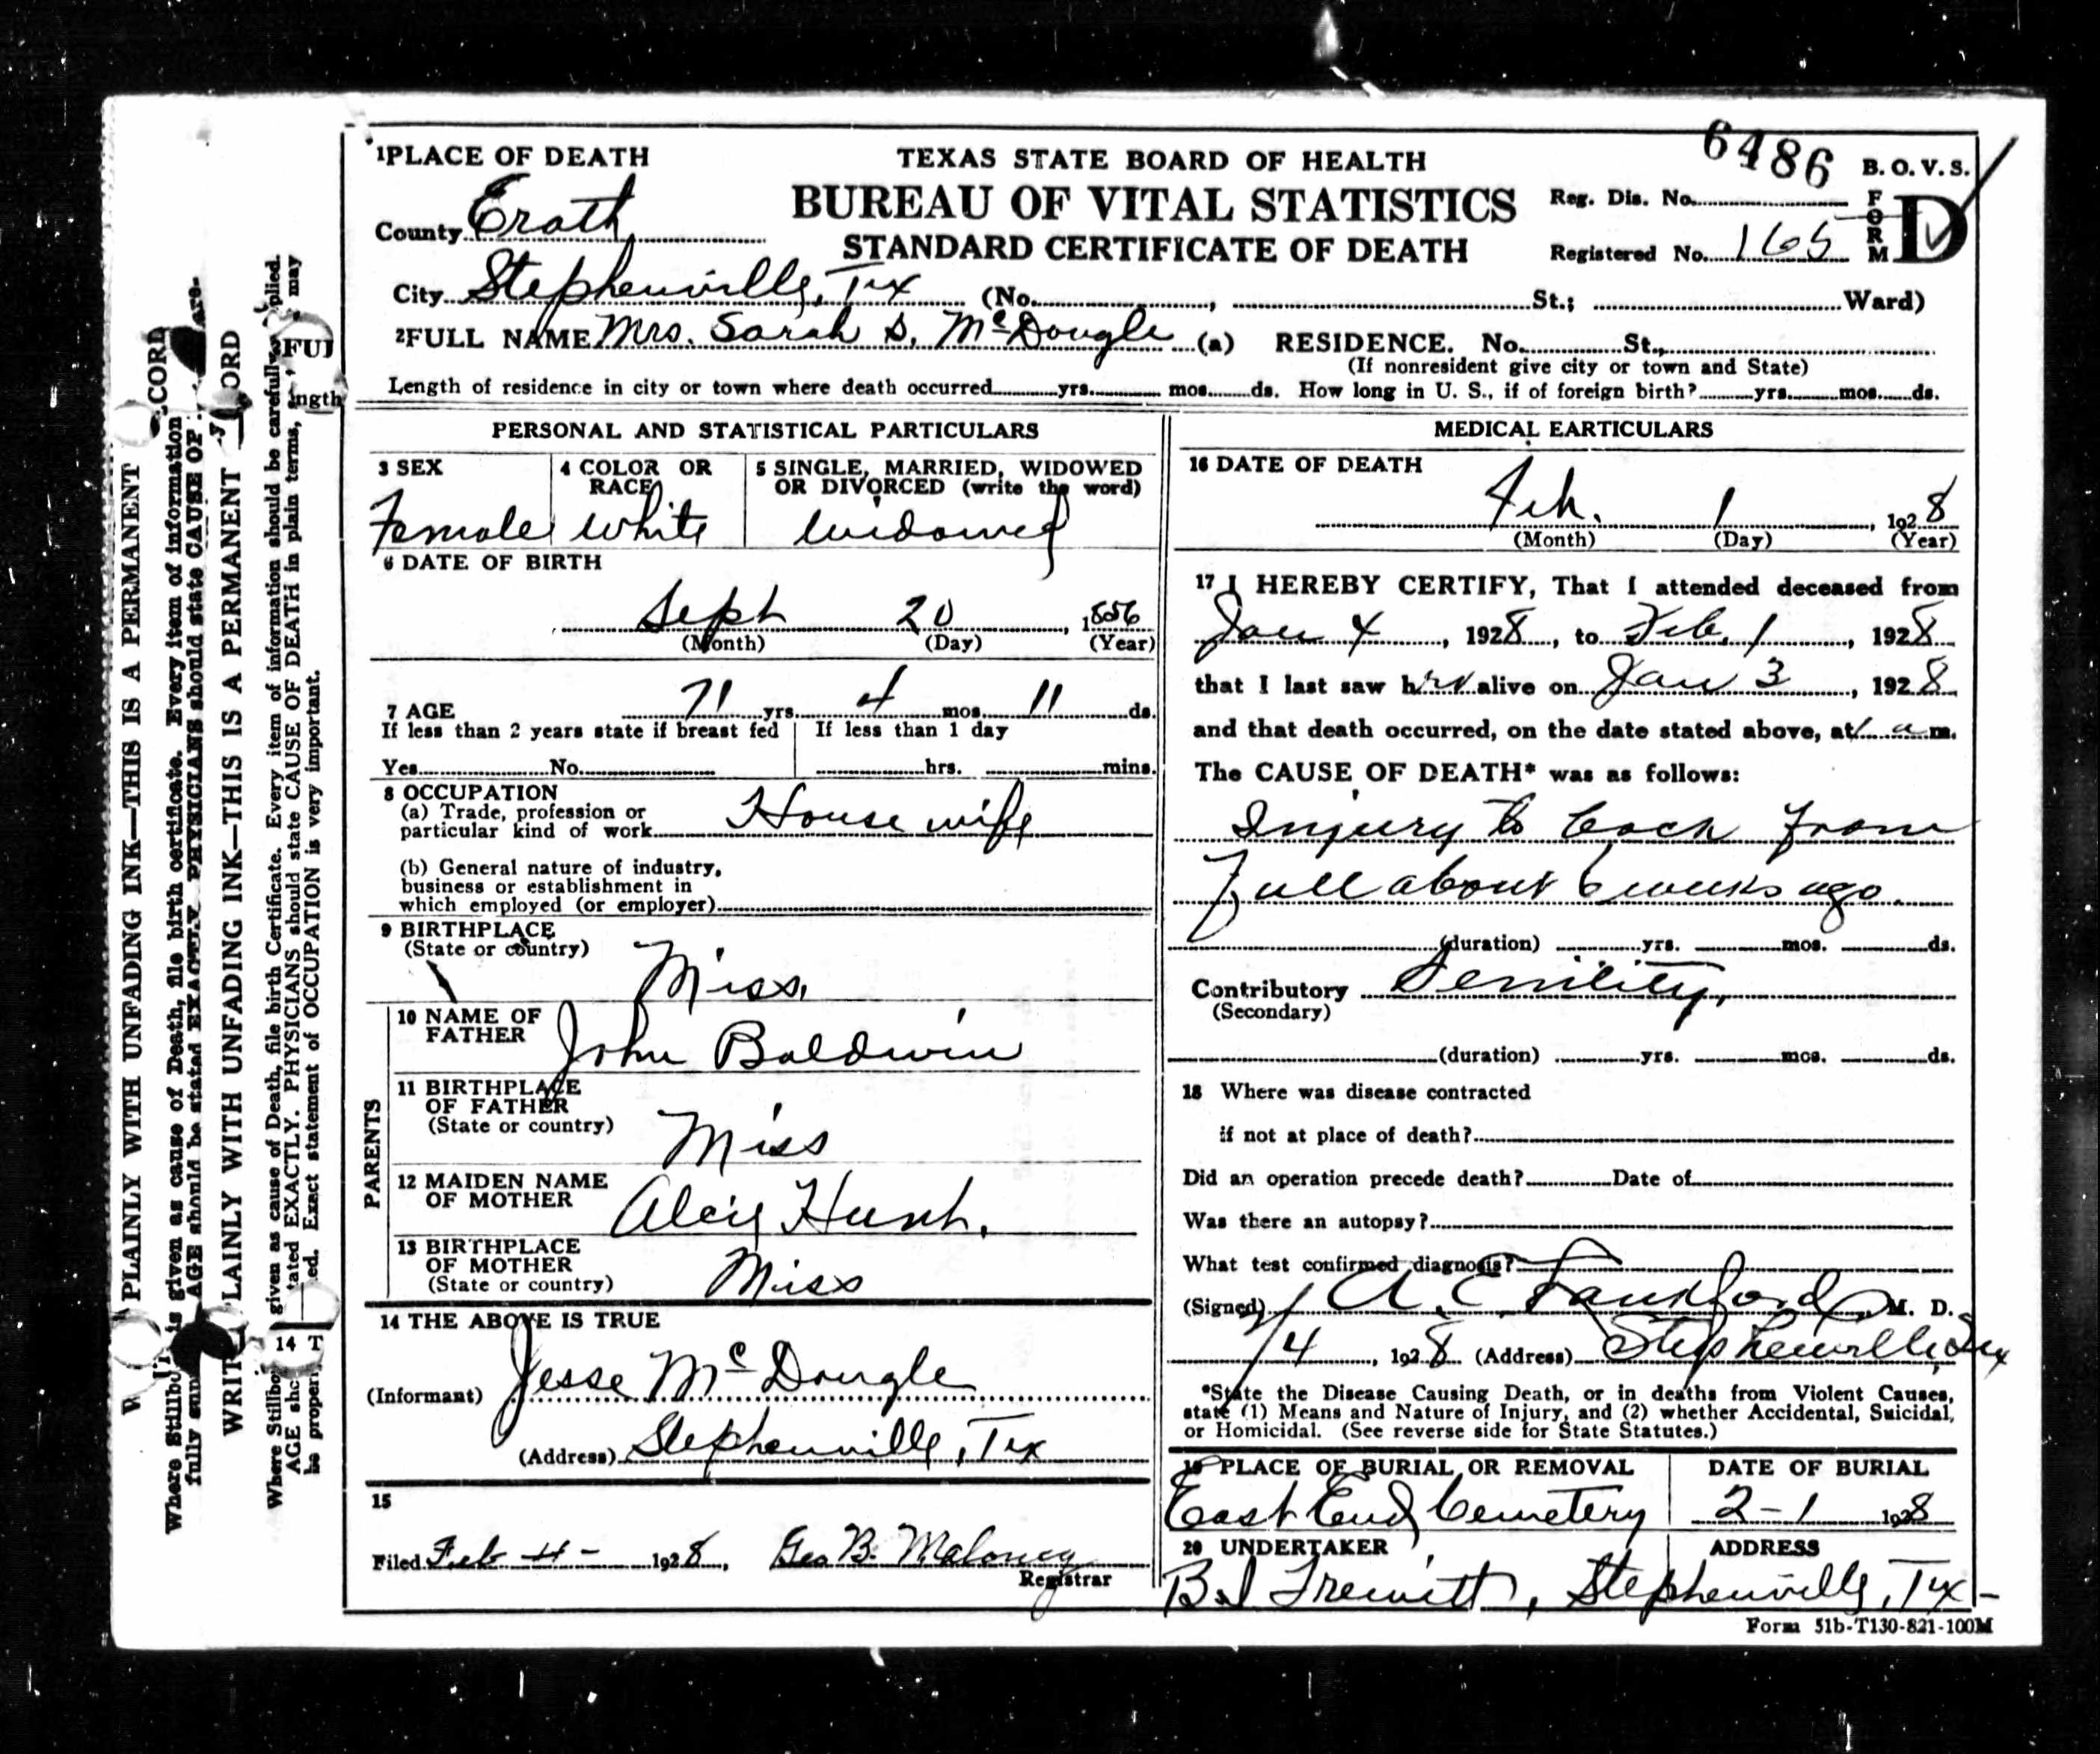 6486
1 PLACE OF DEATH
TEXAS STATE BOARD OF HEALTH
B. O. V. S.
FORM D
County Erath
BUREAU OF VITAL STATISTICS
Reg. Dis. No.
STANDARD CERTIFICATE OF DEATH
Registered No. 165
City Stephenville, Tex (No. , St.; Ward)
2 FULL NAME Mrs. Sarah S. McDougle (a) RESIDENCE. No. St.,
(If nonresident give city or town and State)
Length of residence in city or town where death occurred yrs. mos. ds. How long in U. S., if of foreign birth? yrs. mos. ds.
PERSONAL AND STATISTICAL PARTICULARS
3 SEX
Female
4 COLOR OR RACE
White
5 SINGLE, MARRIED, WIDOWED
OR DIVORCED (write the word)
Widowed
6 DATE OF BIRTH
Sept 20, 1856
(Month) (Day) (Year)
7 AGE 71 yrs. 4 mos. 11 ds.
If less than 2 years state if breast fed
If less than 1 day
Yes No
hrs. mins.
8 OCCUPATION
(a) Trade, profession or
particular kind of work House wife
(b) General nature of industry,
business or establishment in
which employed (or employer)
9 BIRTHPLACE
(State or country)
Miss.
PARENTS
10 NAME OF
FATHER
John Baldwin
11 BIRTHPLACE
OF FATHER
(State or country)
Miss
12 MAIDEN NAME
OF MOTHER
Hunt.
13 BIRTHPLACE
OF MOTHER
(State or country)
Miss
14 THE ABOVE IS TRUE
(Informant) Jesse McDougle
(Address) Stephenville, Tex
15
Filed Feb 4 - 1928, Geo B. Maloney
Registrar
MEDICAL EARTICULARS
16 DATE OF DEATH
Feb. 1, 1928
(Month) (Day) (Year)
17 I HEREBY CERTIFY, That I attended deceased from
Jan 4, 1928, to Feb. 1, 1928
that I last saw her alive on Jan 3, 1928
and that death occurred, on the date stated above, at 1 a m.
The CAUSE OF DEATH* was as follows:
Injury to back from
Fall about 6 weeks ago.
(duration) yrs. mos. ds.
Contributory Senility.
(Secondary)
(duration) yrs. mos. ds.
18 Where was disease contracted
if not at place of death?
Did an operation precede death? Date of
Was there an autopsy?
What test confirmed diagnosis?
(Signed) A. C. M. D.
2/4, 1928 (Address) Stephenville, Tex
*State the Disease Causing Death, or in deaths from Violent Causes,
state (1) Means and Nature of Injury, and (2) whether Accidental, Suicidal,
or Homicidal. (See reverse side for State Statutes.)
19 PLACE OF BURIAL OR REMOVAL
East End Cemetery
DATE OF BURIAL
2-1 1928
20 UNDERTAKER
ADDRESS
Trewitt, Stephenville, Tex-
Form 51b-T130-821-100M
PLAINLY WITH UNFADING INK—THIS IS A PERMANENT
is given as cause of Death, file birth certificate. Every item of information
AGE should be stated EXACTLY. PHYSICIANS should state CAUSE OF
LAINLY WITH UNFADING INK—THIS IS A PERMANENT
given as cause of Death, file birth Certificate. Every item of information should be carefully
tated EXACTLY. PHYSICIANS should state CAUSE OF DEATH in plain terms, may
ed. Exact statement of OCCUPATION is very important.
FUI
ngth
14 T